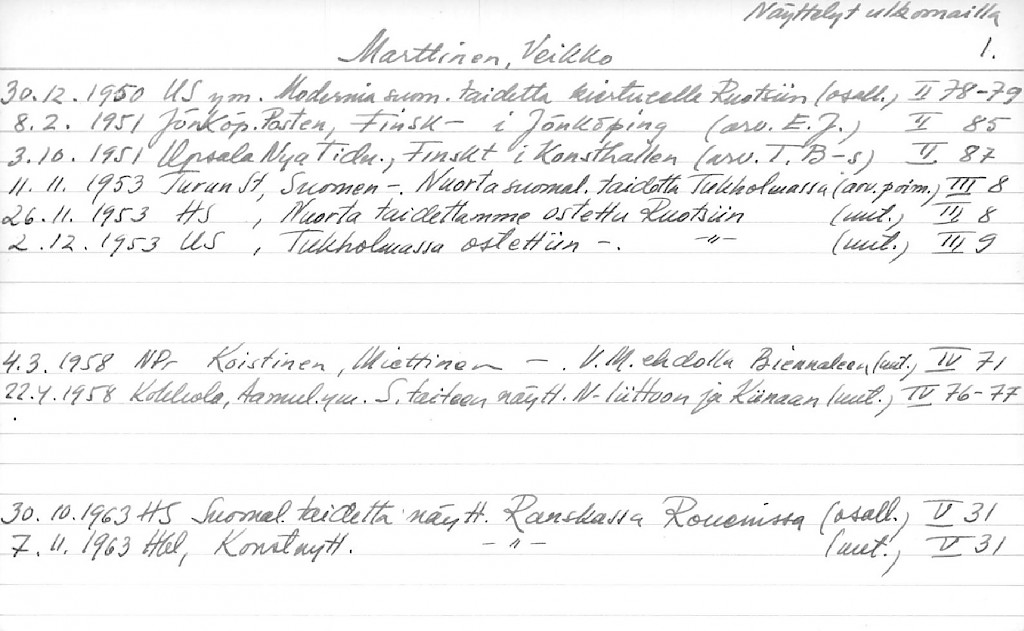 Näyttelyt ulkomailla
1.
Marttinen, Veikko
30.12.1950 US ym. Modernia suom. taidetta kiertueelle Ruotsiin (osall.) II 78-79
8.2. 1951 Jönköp. Posten, Finsk- i Jönköping (arv. E.J.) II 85
3.10. 1951 Upsala Nya Tidn., Finskt i Konsthallen (arv. T. B-s) II 87
11.11. 1953 Turun St, Suomen -. Nuorta suomal. taidetta Tukholmassa (arv. poim.) III 8
26.11. 1953 HS, Nuorta taidettamme ostettu Ruotsiin (uut.) III 8
2.12.1953 US, Tukholmassa ostettiin -. -"- (uut.) III 9
4.3. 1958 NPr Koistinen, Miettinen - . V.M. ehdolla Biennaleen (uut.) IV 71
22.4.1958 Kokkola, Aamul. ym. S. taiteen näytt. N-liittoon ja Kiinaan (uut.) IV 76-77
30.10.1963 HS Suomal. taidetta näytt. Ranskassa Rouenissa (osall.) V 31
7.11. 1963 Hbl, Konstnytt. -"- (uut.) V 31